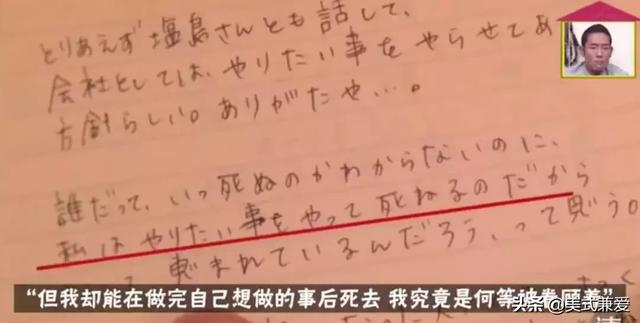 とりあえず塩島さんとも話して、
会社としては、やりたい事をやらせてあ
方針らしい。ありがたや…。
誰だって、いつ死ぬのかわからないのに、
私はやりたい事をやって死ねるのだから
まれているんだろう、って思う。
“但我却能在做完自己想做的事后死去 我究竟是何等被眷顾着”
头条 @美式兼爱